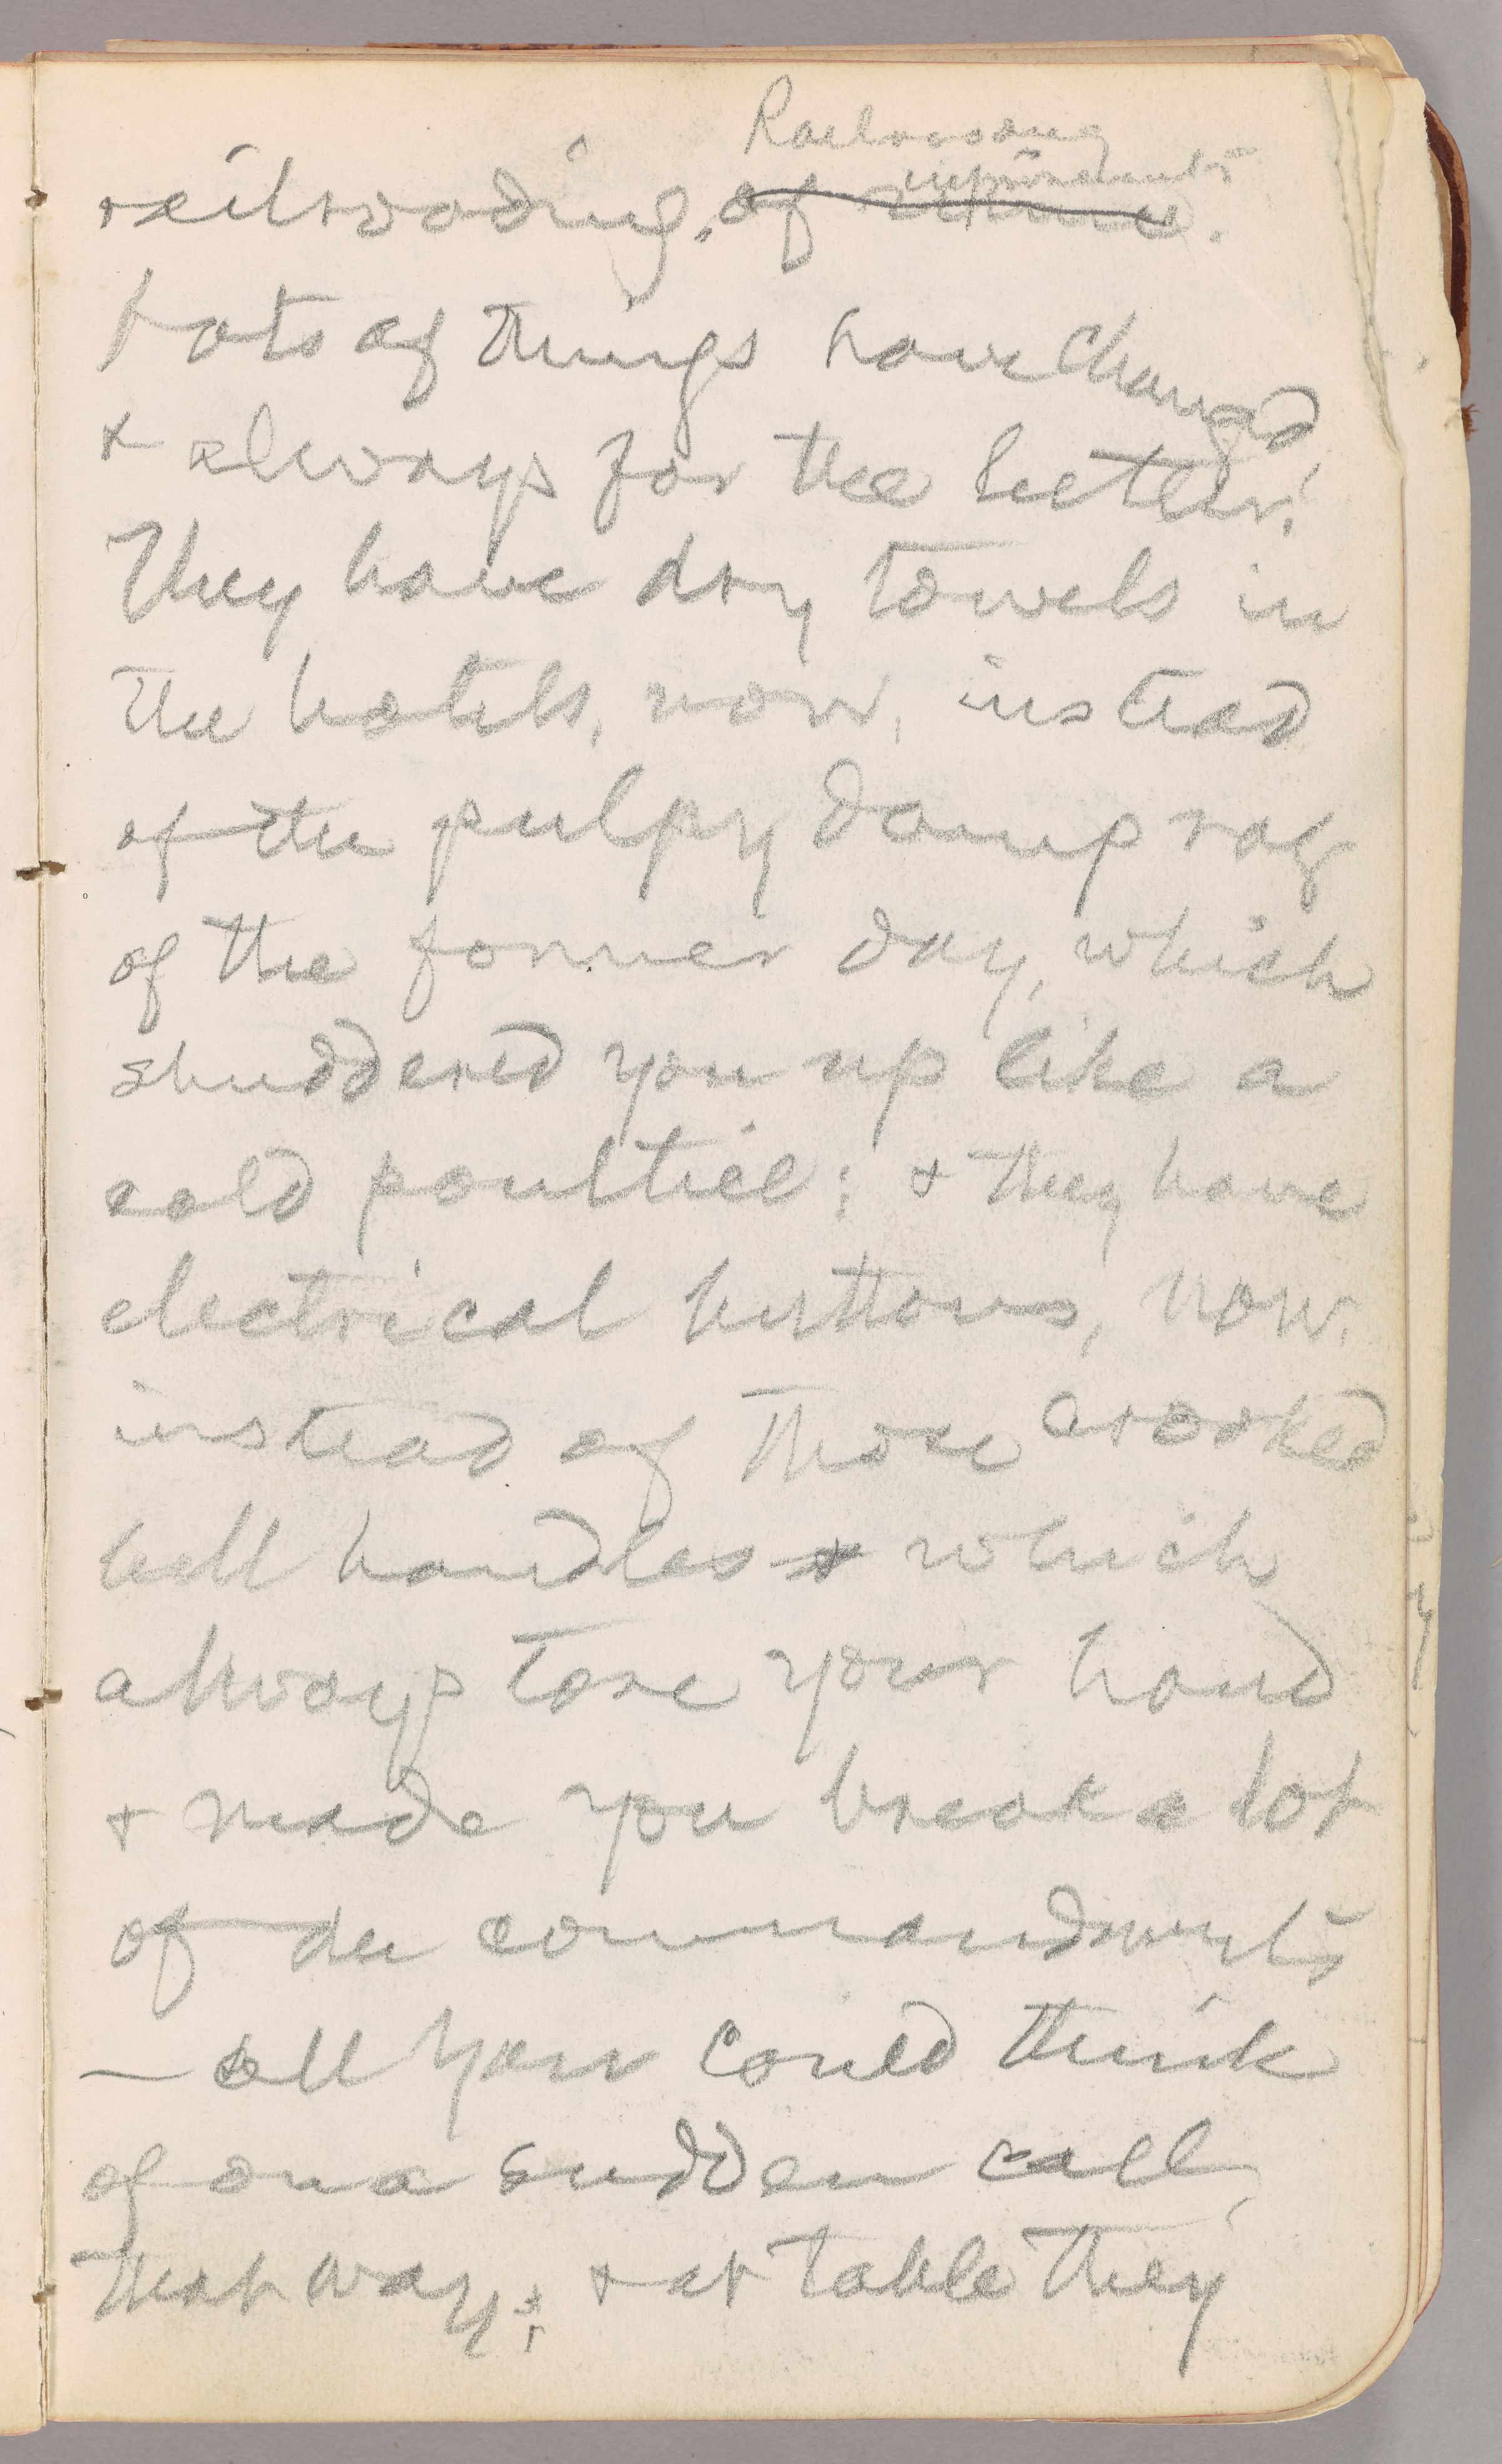 Railroading
improvements
railroading, of
Lots of things have changed,
& always for the better.
They have dry towels in
the hotels, now, instead
of the pulpy damp rag
of the former day, which
shuddered you up like a
cold poultice; & they have
electrical buttons, now,
instead of those crooked
bell handles & which
always tore your hand
& made you break a lot
of the commandments
— all you could think
of on a sudden call,
that way; & at table they